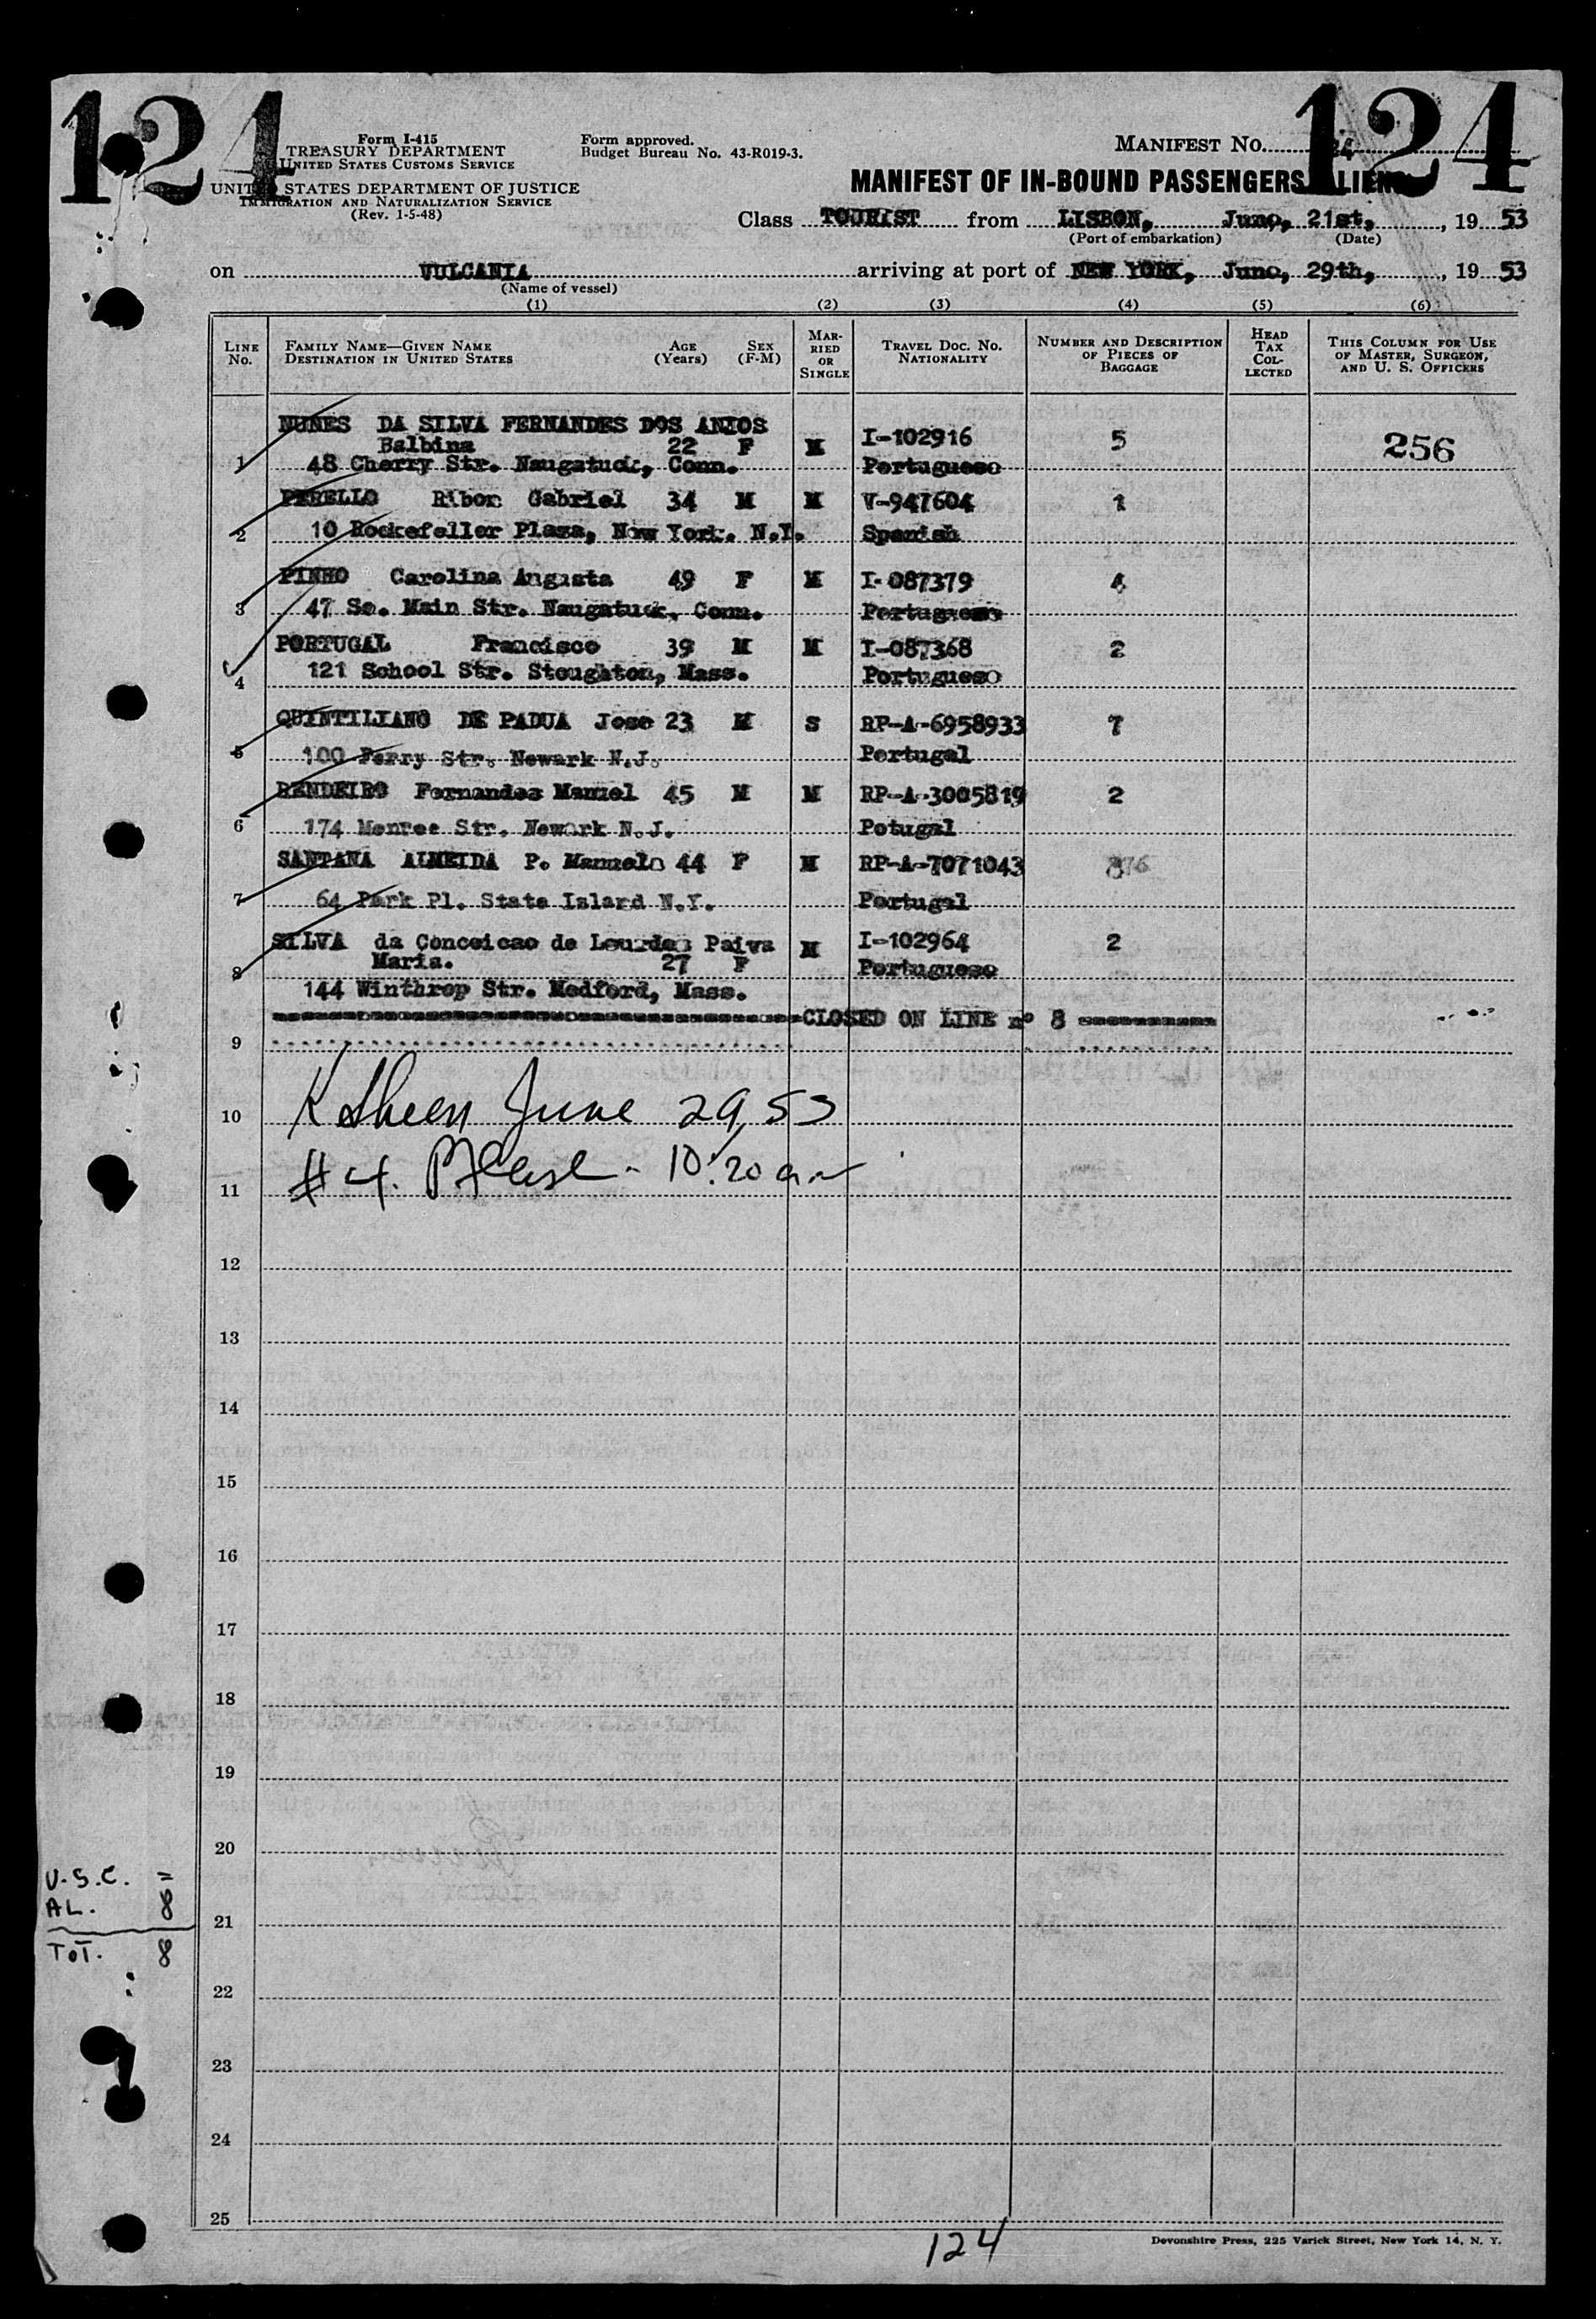 124
124
Form I-415
TREASURY DEPARTMENT
UNITED STATES CUSTOMS SERVICE
UNITED STATES DEPARTMENT OF JUSTICE
IMMIGRATION AND NATURALIZATION SERVICE
(Rev. 1-5-48)
Form approved.
Budget Bureau No. 43-R019-3.
MANIFEST NO.
MANIFEST OF IN-BOUND PASSENGERS
Class TOURIST from LISBON, June, 21st, , 19 53
(Port of embarkation) (Date)
on VULCANIA arriving at port of NEW YORK, June, 29th, , 19 53
(Name of vessel)
(1) (2) (3) (4) (5) (6)
LINE No. FAMILY NAME—GIVEN NAME DESTINATION IN UNITED STATES AGE (Years) SEX (F-M) MARRIED OR SINGLE TRAVEL DOC. NO. NATIONALITY NUMBER AND DESCRIPTION OF PIECES OF BAGGAGE HEAD TAX COLLECTED THIS COLUMN FOR USE OF MASTER, SURGEON, AND U. S. OFFICERS
NUNES DA SILVA FERNANDES DOS ANJOS
Balbina 22 F M I-102916 5 256
1 48 Cherry Str. Naugatuck, Conn. Portuguese
PERELLO Ribon Gabriel 34 M M V-947604 1
2 10 Rockefeller Plaza, New York. N.Y. Spanish
PINHO Carolina Augusta 49 F M I-087379 4
3 47 So. Main Str. Naugatuck, Conn. Portuguese
PORTUGAL Francisco 39 M M I-087368 2
4 121 School Str. Stoughton, Mass. Portuguese
QUINTILIANO DE PADUA Jose 23 M S RP-A-6958933 7
5 100 Ferry Str. Newark N.J. Portugal
RENDEIRO Fernandes Manuel 45 M M RP-A-3005819 2
6 174 Monroe Str. Newark N.J. Potugal
SANTANA ALMEIDA P. Manuela 44 F M RP-A-7071043
7 64 Park Pl. State Island N.Y. Portugal
SILVA da Conceicao de Lourdes Paiva M I-102964 2
8 Maria. 27 F Portuguese
144 Winthrop Str. Medford, Mass.
CLOSED ON LINE nº 8
9
10 June 29, 53
11 #4. 10:20 am
12
13
14
15
16
17
18
19
20
U.S.C. =
AL. 8
21
TOT. 8
22
23
24
25
124
Devonshire Press, 225 Varick Street, New York 14, N. Y.